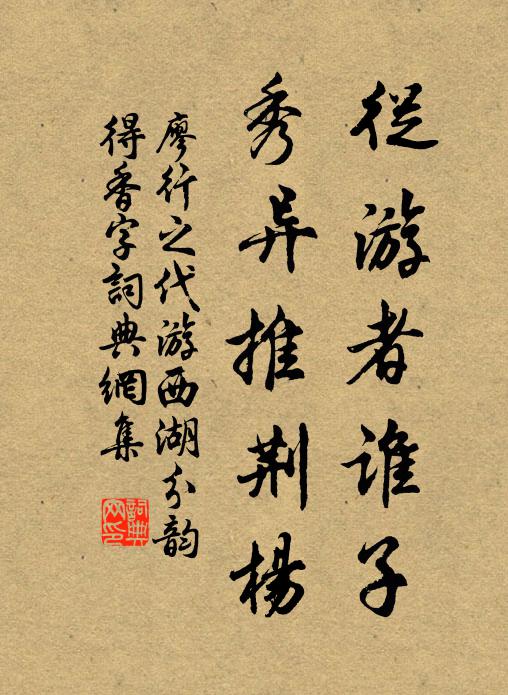 從游者谁子
秀异推荆楊
廖行之代游西湖分韵
得香字詞典網集
詞典网印